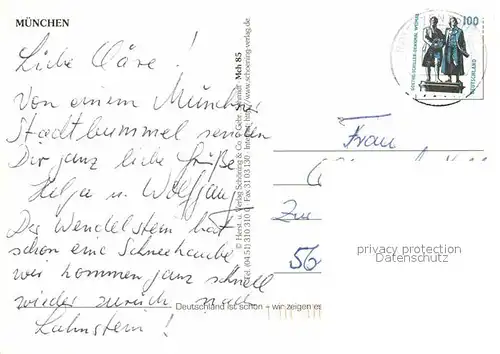 MÜNCHEN
Liebe Cläre!
Von einem Münchner
Stadtbummel senden
Dir ganz liebe Grüße
Helga u. Wolfgang
Der Wendelstein hat
schon eine Schneehaube
wir kommen ganz schnell
wieder zurück nach
Lahnstein!
Deutschland ist schön – wir zeigen es
© Herst. u. Verlag Schöning & Co. + Gebr. Schmidt Mch 85
(04 51) 310 310 Fax 31 03 130 Internet: http://www.schoening-verlag.de
100
DEUTSCHLAND
GOETHE-SCHILLER-DENKMAL WEIMAR
Frau
Zur
56
privacy protection
Datenschutz